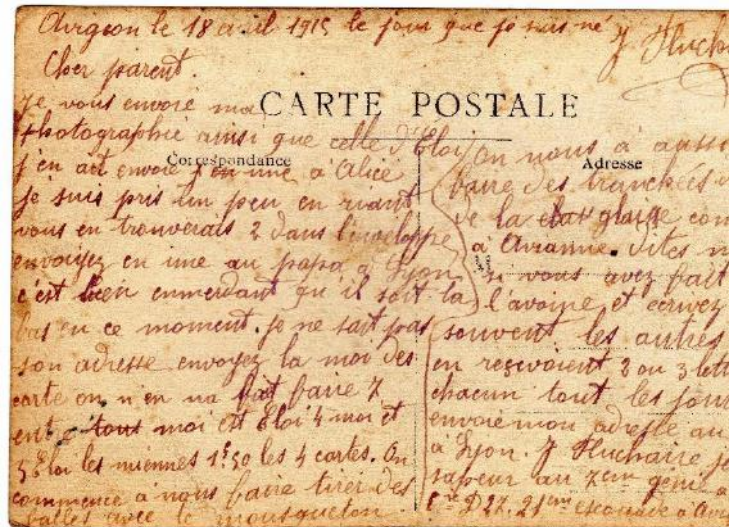 Avigeon le 18 avril 1915 le jour que je suis né
J Huchai
Cher parent.
CARTE POSTALE
Correspondance
Adresse
Je vous envoie ma
Photographie ainsi que celle d'Eloi
j'en ait envoié j'en une a Alice
Je suis pris un peu en riant
vous en trouverais 2 dans l'inveloppe
envoiyez en une au papa a Lyon
c'est bien enmerdant qu il soit la
bas en ce moment. Je ne sait pas
son adresse envoyez la moi des
carte on n'en na fait faire 7
entre tous moi et Eloi 4 moi et
3 Eloi les miennes 1f50 les 4 cartes. On
commence a nous faire tirer des
balles avec le mousqueton
On nous a aussi
faire des tranchées
de la glaise com
a Avranne. Dites m
si vous avez fait
l'avoine et écrivez
souvent les autres
en resevoient 2 ou 3 lett
chacun tout les jour
envoié mon adresse au
a Lyon. J Huchaire
sapeur au 7em genie
Cie D27. 21em escouade a Avi